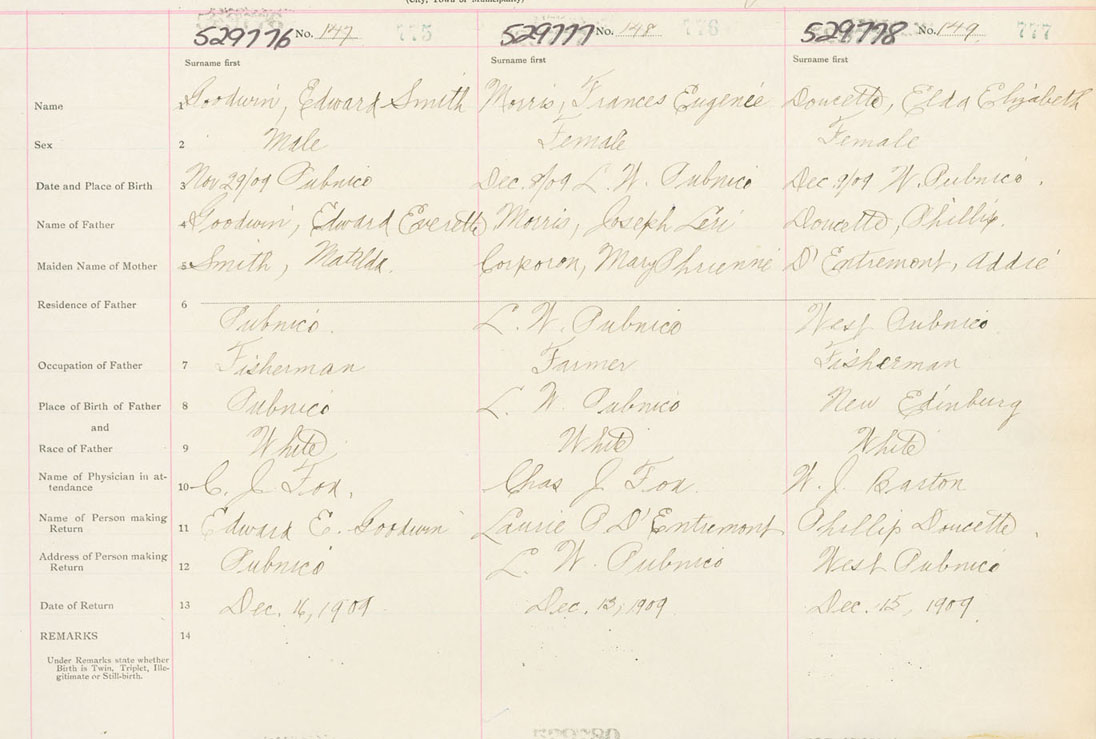 (City, Town or Municipality)
529776 No. 147 775 529777 No. 148 776 529778 No. 149 777
Surname first Surname first Surname first
Name 1 Goodwin, Edward Smith Morris, Frances Eugenie Doucette, Elda Elizabeth
Sex 2 Male Female Female
Date and Place of Birth 3 Nov 29/09 Pubnico Dec. 9/09 L. W. Pubnico Dec 9/09 W. Pubnico.
Name of Father 4 Goodwin, Edward Everette Morris, Joseph Leri Doucette, Phillip.
Maiden Name of Mother 5 Smith, Matilda. Corporon, Mary D'Entremont, Addie
Residence of Father 6
Pubnico. L. W. Pubnico West Pubnico
Occupation of Father 7 Fisherman Farmer Fisherman
Place of Birth of Father 8 Pubnico L. W. Pubnico New Edinburg
and
Race of Father 9 White White White
Name of Physician in at-
tendance 10 C. J. Fox, Chas J Fox. W. J. Barton
Name of Person making
Return 11 Edward E. Goodwin Laurie P D'Entremont Phillip Doucette.
Address of Person making
Return 12 Pubnico L. W. Pubnico West Pubnico
Date of Return 13 Dec. 16, 1909 Dec. 13, 1909 Dec. 15, 1909
REMARKS 14
Under Remarks state whether
Birth is Twin, Triplet, Ille-
gitimate or Still-birth.